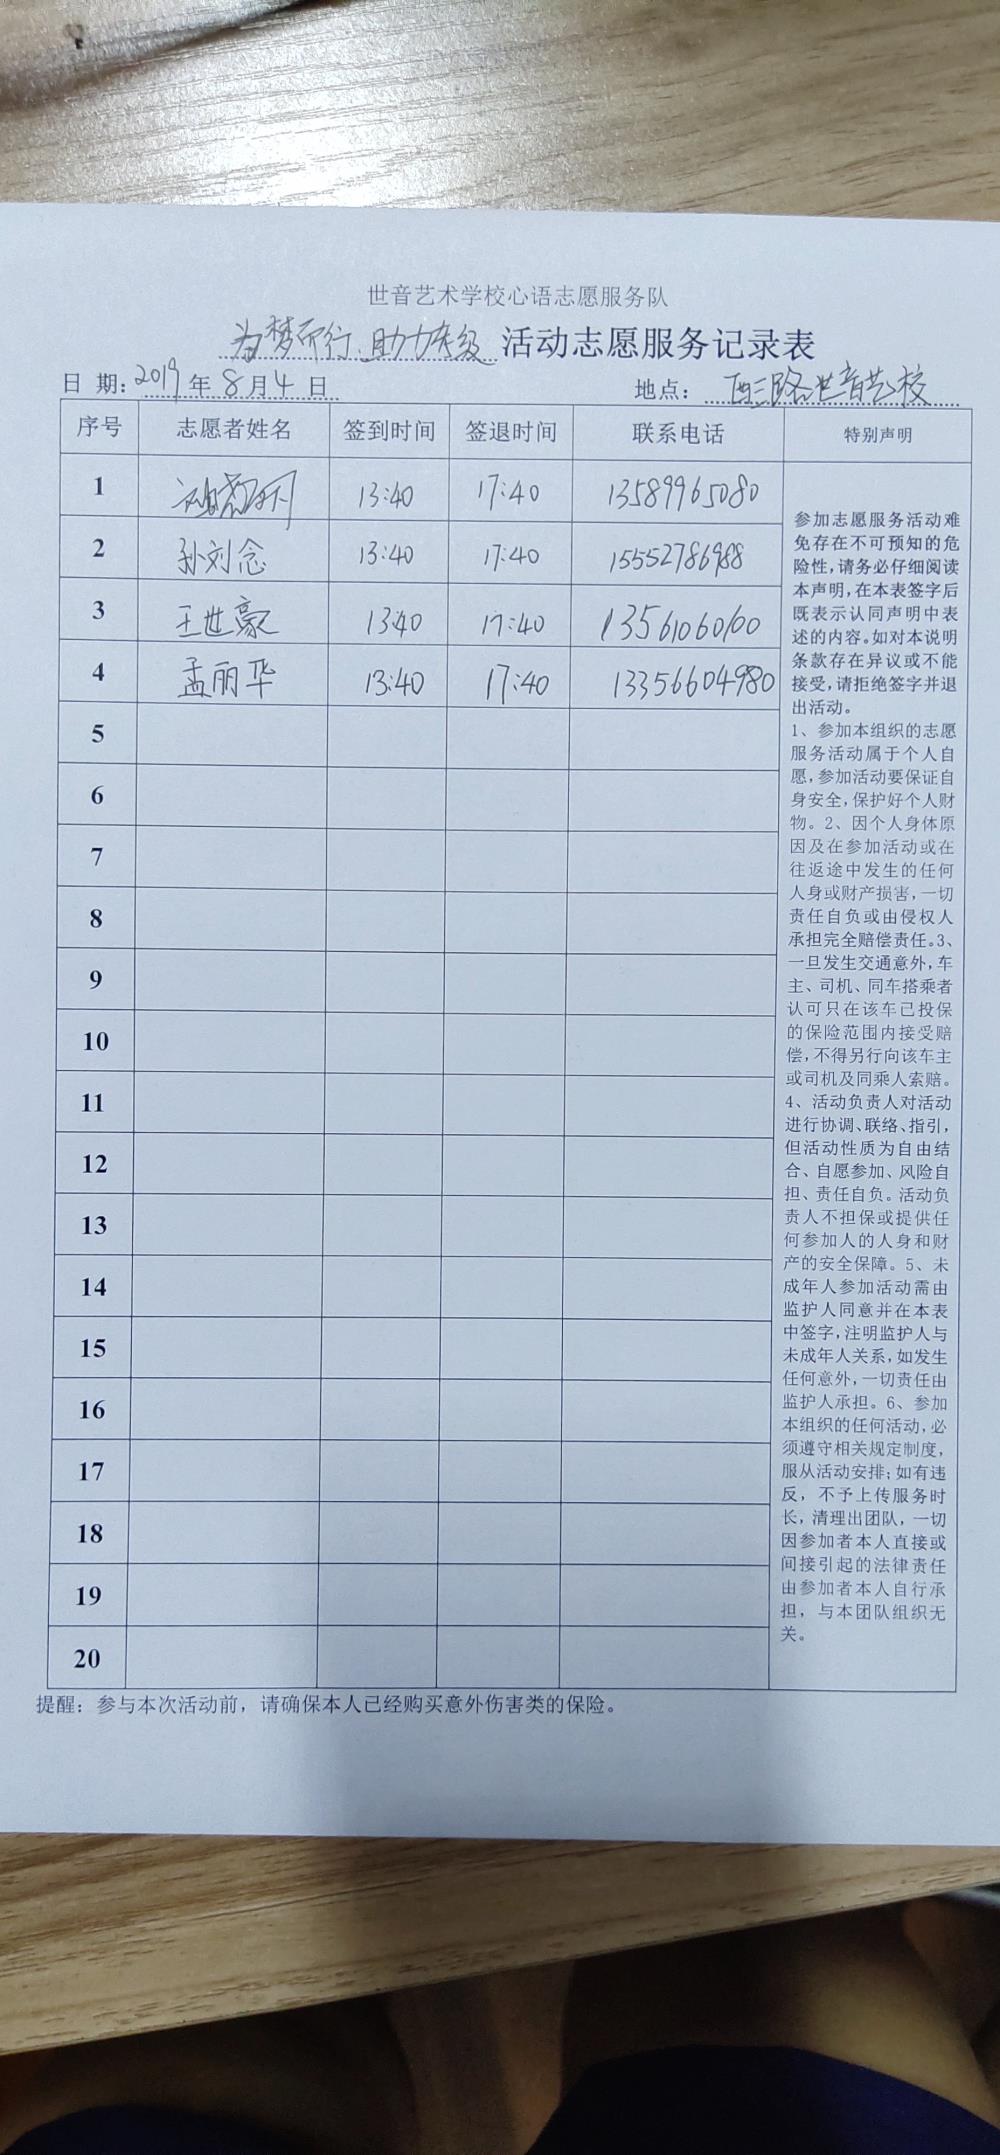 世音艺术学校心语志愿服务队
为梦而行,助力考级 活动志愿服务记录表
日 期: 2019 年 8 月 4 日 地点: 西三路世音艺校
序号 志愿者姓名 签到时间 签退时间 联系电话 特别声明
1 13:40 17:40 13589965080
2 孙刘念 13:40 17:40 15552786988
3 王世豪 13:40 17:40 13561060100
4 孟丽华 13:40 17:40 13356604980
5
6
7
8
9
10
11
12
13
14
15
16
17
18
19
20
参加志愿服务活动难
免存在不可预知的危
险性,请务必仔细阅读
本声明,在本表签字后
既表示认同声明中表
述的内容。如对本说明
条款存在异议或不能
接受,请拒绝签字并退
出活动。
1、参加本组织的志愿
服务活动属于个人自
愿,参加活动要保证自
身安全,保护好个人财
物。2、因个人身体原
因及在参加活动或在
往返途中发生的任何
人身或财产损害,一切
责任自负或由侵权人
承担完全赔偿责任。3、
一旦发生交通意外,车
主、司机、同车搭乘者
认可只在该车已投保
的保险范围内接受赔
偿,不得另行向该车主
或司机及同乘人索赔。
4、活动负责人对活动
进行协调、联络、指引,
但活动性质为自由结
合、自愿参加、风险自
担、责任自负。活动负
责人不担保或提供任
何参加人的人身和财
产的安全保障。5、未
成年人参加活动需由
监护人同意并在本表
中签字,注明监护人与
未成年人关系,如发生
任何意外,一切责任由
监护人承担。6、参加
本组织的任何活动,必
须遵守相关规定制度,
服从活动安排;如有违
反,不予上传服务时
长,清理出团队,一切
因参加者本人直接或
间接引起的法律责任
由参加者本人自行承
担,与本团队组织无
关。
提醒:参与本次活动前,请确保本人已经购买意外伤害类的保险。